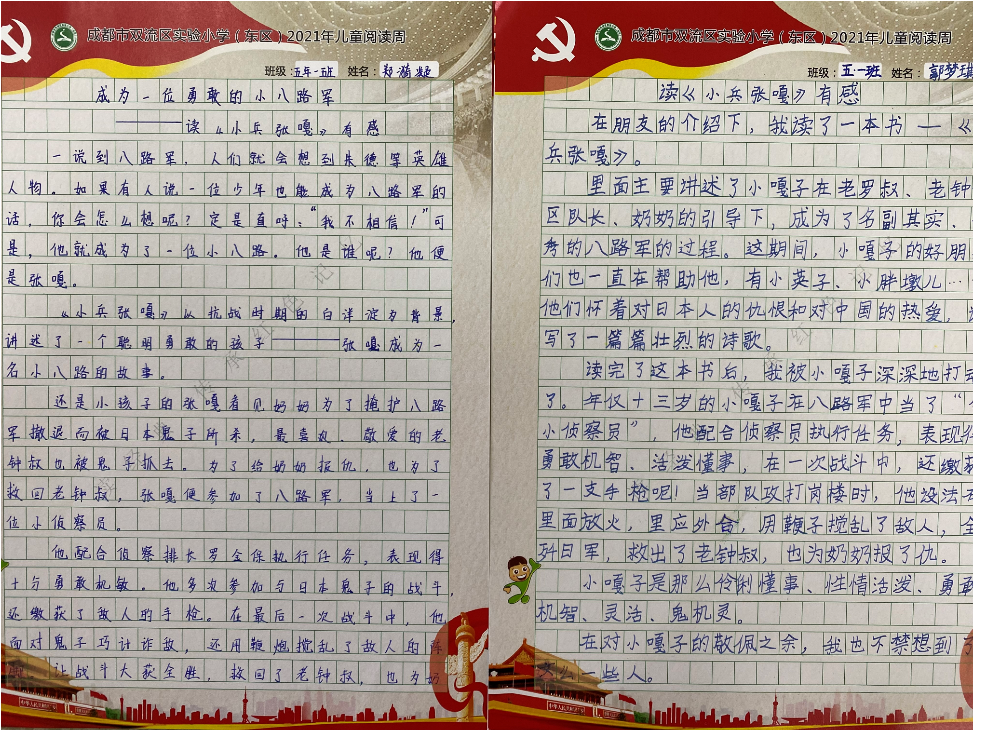 成都市双流区实验小学（东区）2021年儿童阅读周
班级：五年一班 姓名：
成为一位勇敢的小八路军
——读《小兵张嘎》有感
一说到八路军，人们就会想到朱德等英雄
人物。如果有人说一位少年也能成为八路军的
话，你会怎么想呢？定是直呼：“我不相信！”可
是，他就成为了一位小八路。他是谁呢？他便
是张嘎。
《小兵张嘎》以抗战时期的白洋淀为背景，
讲述了一个聪明勇敢的孩子——张嘎成为一
名小八路的故事。
还是小孩子的张嘎看见奶奶为了掩护八路
军撤退而被日本鬼子所杀，最喜欢、敬爱的老
钟叔也被鬼子抓去。为了给奶奶报仇，也为了
救回老钟叔，张嘎便参加了八路军，当上了一
位小侦察员。
他配合侦察排长罗金保执行任务，表现得
十分勇敢机敏。他多次参加与日本鬼子的战斗，
还缴获了敌人的手枪。在最后一次战斗中，他
面对鬼子巧计诈敌，还用鞭炮搅乱了敌人的阵
让战斗大获全胜，救回了老钟叔，也为奶
成都市双流区实验小学（东区）2021年儿童阅读周
班级：五一班 姓名：郭梦琪
读《小兵张嘎》有感
在朋友的介绍下，我读了一本书——《
兵张嘎》。
里面主要讲述了小嘎子在老罗叔、老钟
区队长、奶奶的引导下，成为了名副其实、
秀的八路军的过程。这期间，小嘎子的好朋
们也一直在帮助他，有小英子、小胖墩儿…
他们怀着对日本人的仇恨和对中国的热爱，
写了一篇篇壮烈的诗歌。
读完了这本书后，我被小嘎子深深地打
了。年仅十三岁的小嘎子在八路军中当了“
小侦察员”，他配合侦察员执行任务，表现得
勇敢机智、活泼懂事，在一次战斗中，还缴获
了一支手枪呢！当部队攻打岗楼时，他设法在
里面放火，里应外合，用鞭子搅乱了敌人，全
歼日军，救出了老钟叔，也为奶奶报了仇。
小嘎子是那么伶俐懂事、性情活泼、勇敢
机智、灵活、鬼机灵。
在对小嘎子的敬佩之余，我也不禁想到了
一些人。